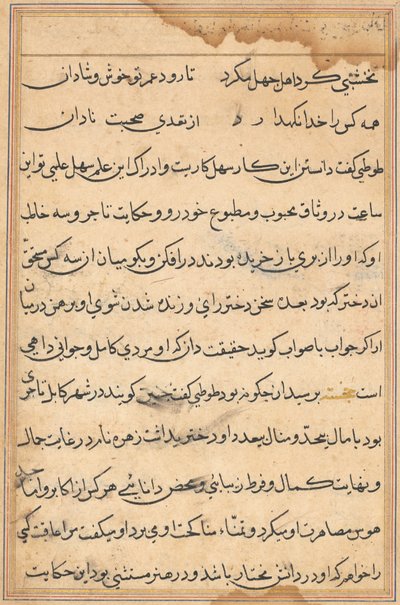 نخشبی گرد اهل جهل مگرد تا رود عمر تو خوش و شادان
همه کس را خدا نگهدارد از تعدی صحبت نادان
طوطی گفت دانستن این کار سهل کاریست و ادراک این علم سهل علمی تو این
ساعت در وثاق محبوب و مطبوع خود رو و حکایت تاجر و سه خاطب
او که او را از بری باز خریده بودند در افکن و بگو میان از سه کس مستحق
آن دختر که بود بعده سخن دختر رای و زنده شدن شوی او برهمن در میان
ار اگر جواب با صواب گوید حقیقت دان که او مردی کامل و جوانی داهی
است خجسته پرسید آن چگونه بود طوطی گفت چنین گویند در شهر کابل تاجری
بود با مال بیحد و منال بیعدد او دختری داشت زهره نام در غایت جمال
و نهایت کمال و فرط زیبایی و محض دانایی هر کس از اکابر و اماجد
هوس مصاهرت او میکرد و تمناء مناکحت او می برد او میگفت مرا مافت کسی
را خواهم که او در دانش مختار باشد و در هنر مستثنی بود این حکایت